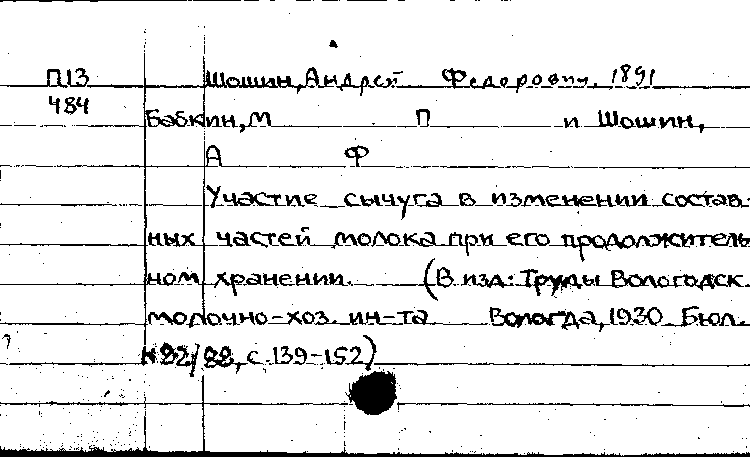 П13 Шошин, Андрей Федорович. 1891
484 Бабкин, М П и Шошин,
А Ф
Участие сычуга в изменении состав-
ных частей молока при его продолжитель
ном хранении. (В изд: Труды Вологодск.
молочно-хоз. ин-та Вологда, 1930. Бюл.
с. 139-152)